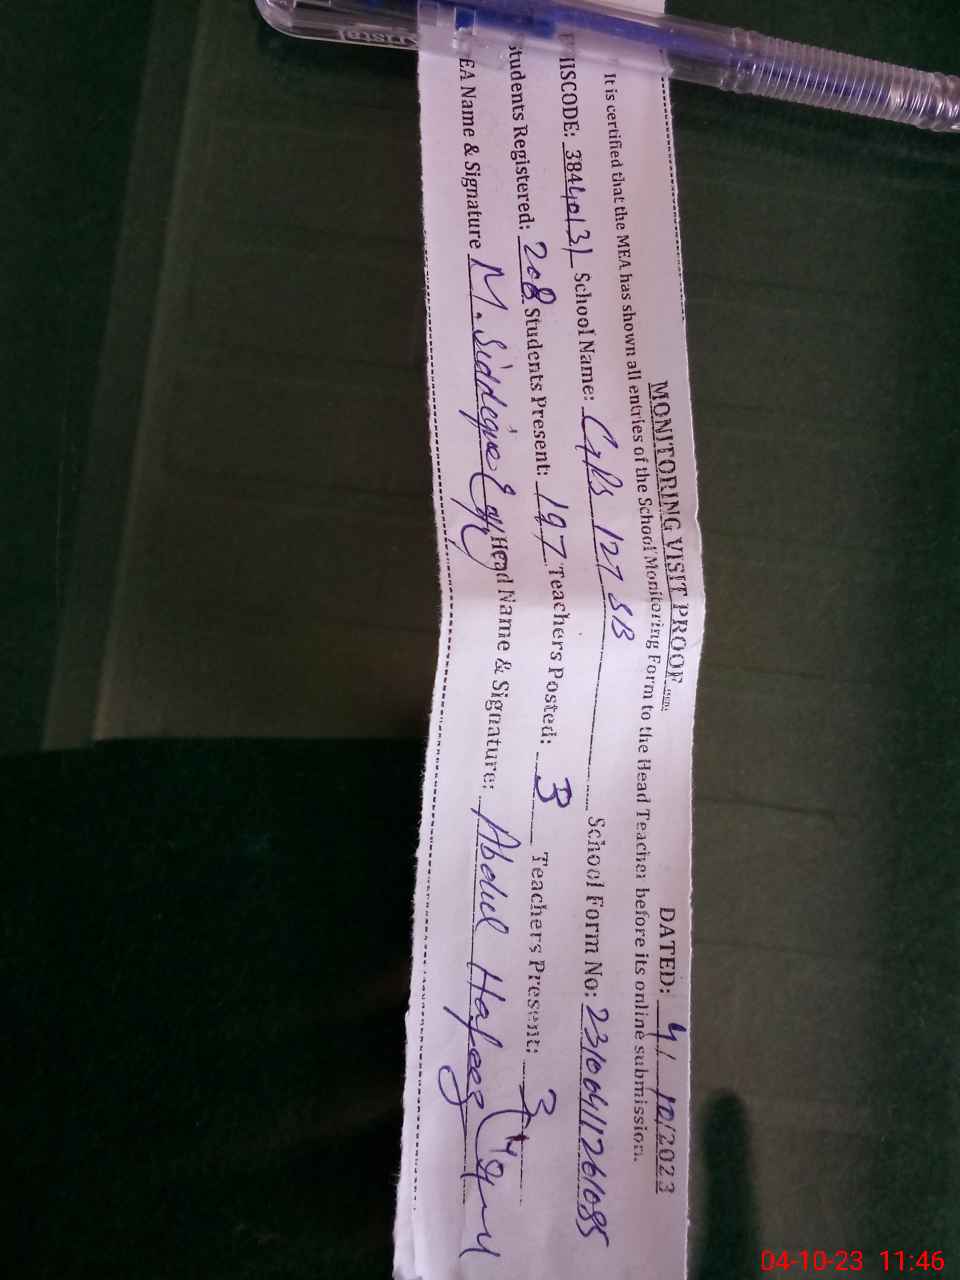 MONITORING VISIT PROOF DATED: 4/10/2023
It is certified that the MEA has shown all entries of the School Monitoring Form to the Head Teacher before its online submission.
ISCODE: 38440131 School Name: GPS 127 SB School Form No:
Students Registered: 208 Students Present: 197 Teachers Posted: 3 Teachers Present: 3
EA Name & Signature M. Siddique Head Name & Signature: Abdul Hafeez
04-10-23 11:46